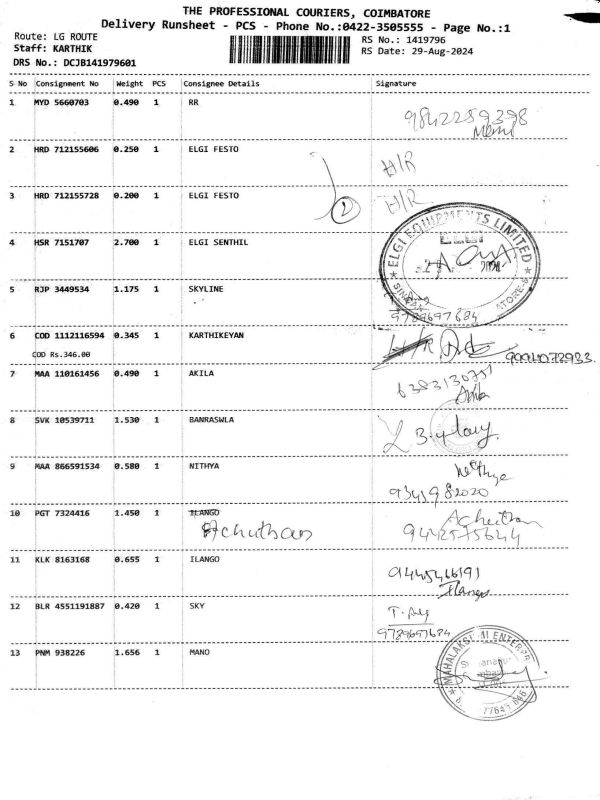 THE PROFESSIONAL COURIERS, COIMBATORE
Delivery Runsheet - PCS - Phone No.:0422-3505555 - Page No.:1
Route: LG ROUTE
RS No.: 1419796
Staff: KARTHIK
RS Date: 29-Aug-2024
DRS No.: DCJB141979601
S No Consignment No Weight PCS Consignee Details Signature
1 MYD 5660703 0.490 1 RR 9842259398
2 HRD 712155606 0.250 1 ELGI FESTO H/R
3 HRD 712155728 0.200 1 ELGI FESTO H/R
2
4 HSR 7151707 2.700 1 ELGI SENTHIL
ELGI EQUIPMENTS LIMITED
ELGI
5 RJP 3449534 1.175 1 SKYLINE
9789697684
6 COD 1112116594 0.345 1 KARTHIKEYAN H/R
COD Rs.346.00
7 MAA 110161456 0.490 1 AKILA 6383130751
Akila
8 SVK 10539711 1.530 1 BANRASWLA
9 MAA 866591534 0.580 1 NITHYA Nithya
9341982020
10 PGT 7324416 1.450 1 ILANGO Achuthan
Achuthan 9442575644
11 KLK 8163168 0.655 1 ILANGO 9445466191
Ilango
12 BLR 4551191887 0.420 1 SKY
9789697684
13 PNM 938226 1.656 1 MANO
MAHALAKSHMI ENTERPR